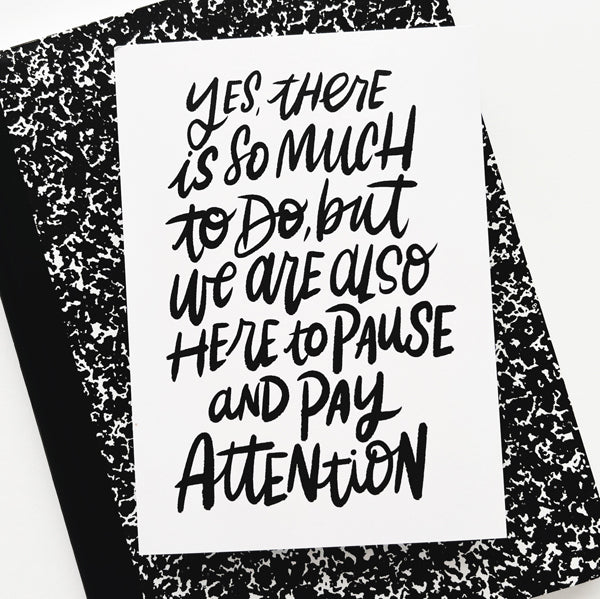 yES, tHERE
is So MUCH
to Do, but
We ARE alSo
HERE to PAUSE
aND PAY
AttENtioN